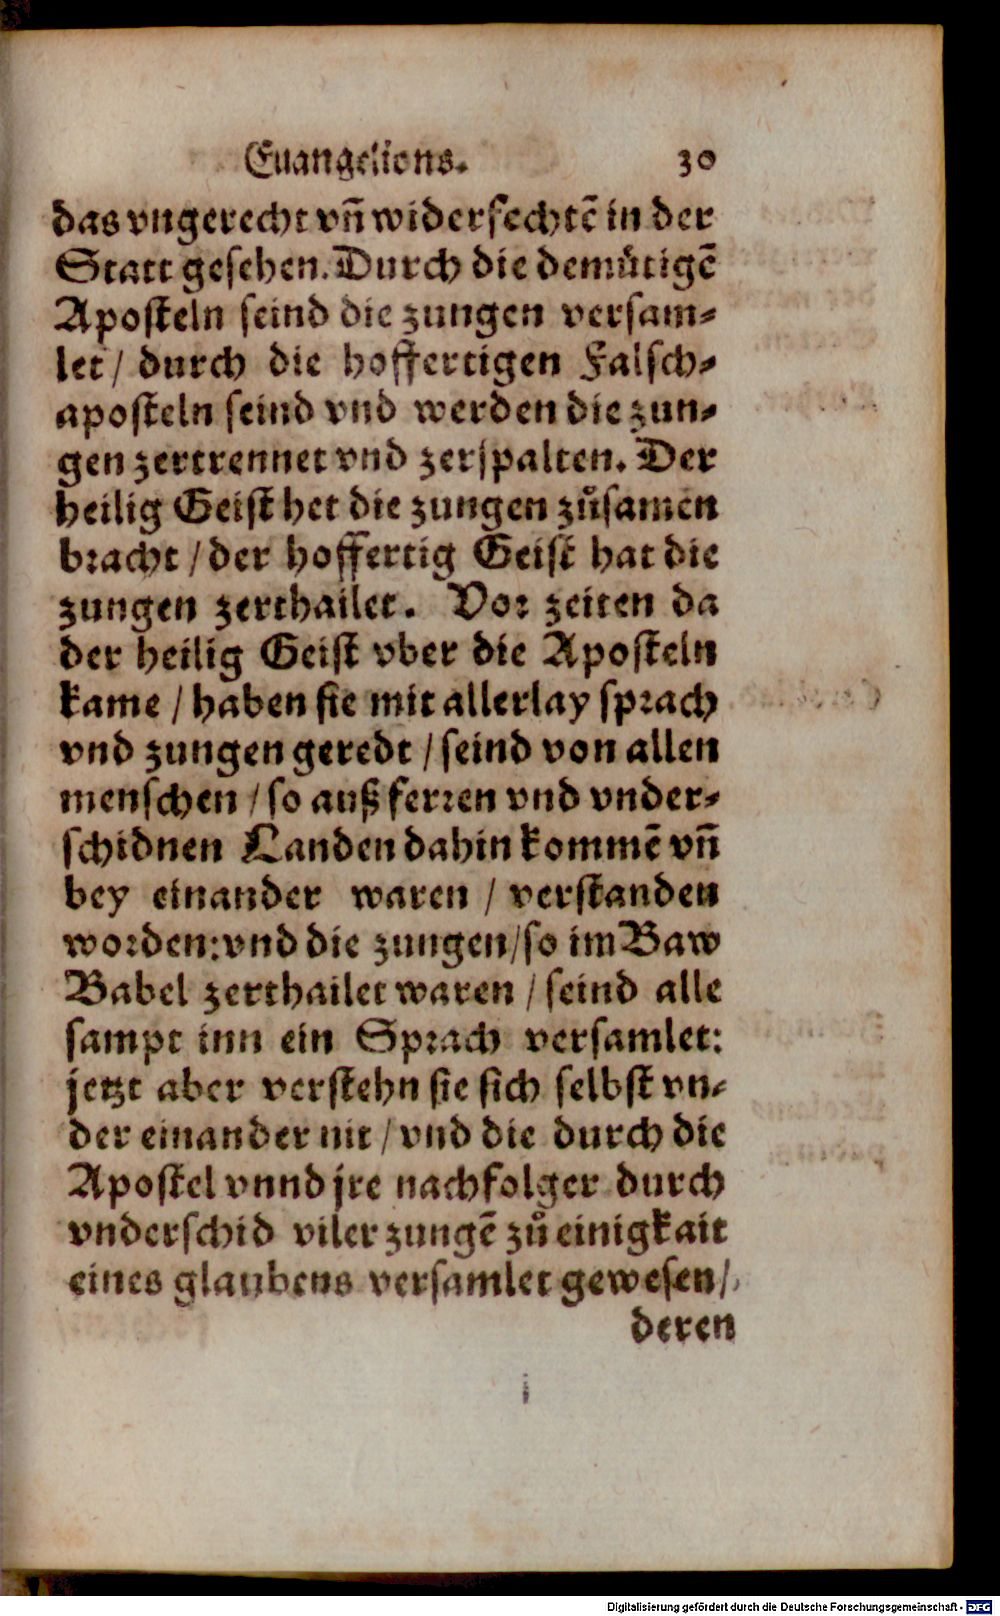 Euangelions. 30
das vngerecht vñ widerfechtẽ in der
Statt gesehen. Durch die demuͤtigẽ
Aposteln seind die zungen versam⸗
let / durch die hoffertigen Falsch⸗
aposteln seind vnd werden die zun⸗
gen zertrennet vnd zerspalten. Der
heilig Geist het die zungen zůsamen
bracht / der hoffertig Geist hat die
zungen zerthailet. Vor zeiten da
der heilig Geist vber die Aposteln
kame / haben sie mit allerlay sprach
vnd zungen geredt / seind von allen
menschen / so auß ferren vnd vnder⸗
schidnen Landen dahin kommẽ vñ
bey einander waren / verstanden
worden: vnd die zungen / so im Baw
Babel zerthailet waren / seind alle
sampt inn ein Sprach versamlet:
jetzt aber verstehn sie sich selbst vn⸗
der einander nit / vnd die durch die
Apostel vnnd jre nachfolger durch
vnderschid viler zungẽ zů einigkait
eines glaubens versamlet gewesen /
deren
i
Digitalisierung gefördert durch die Deutsche Forschungsgemeinschaft - DFG